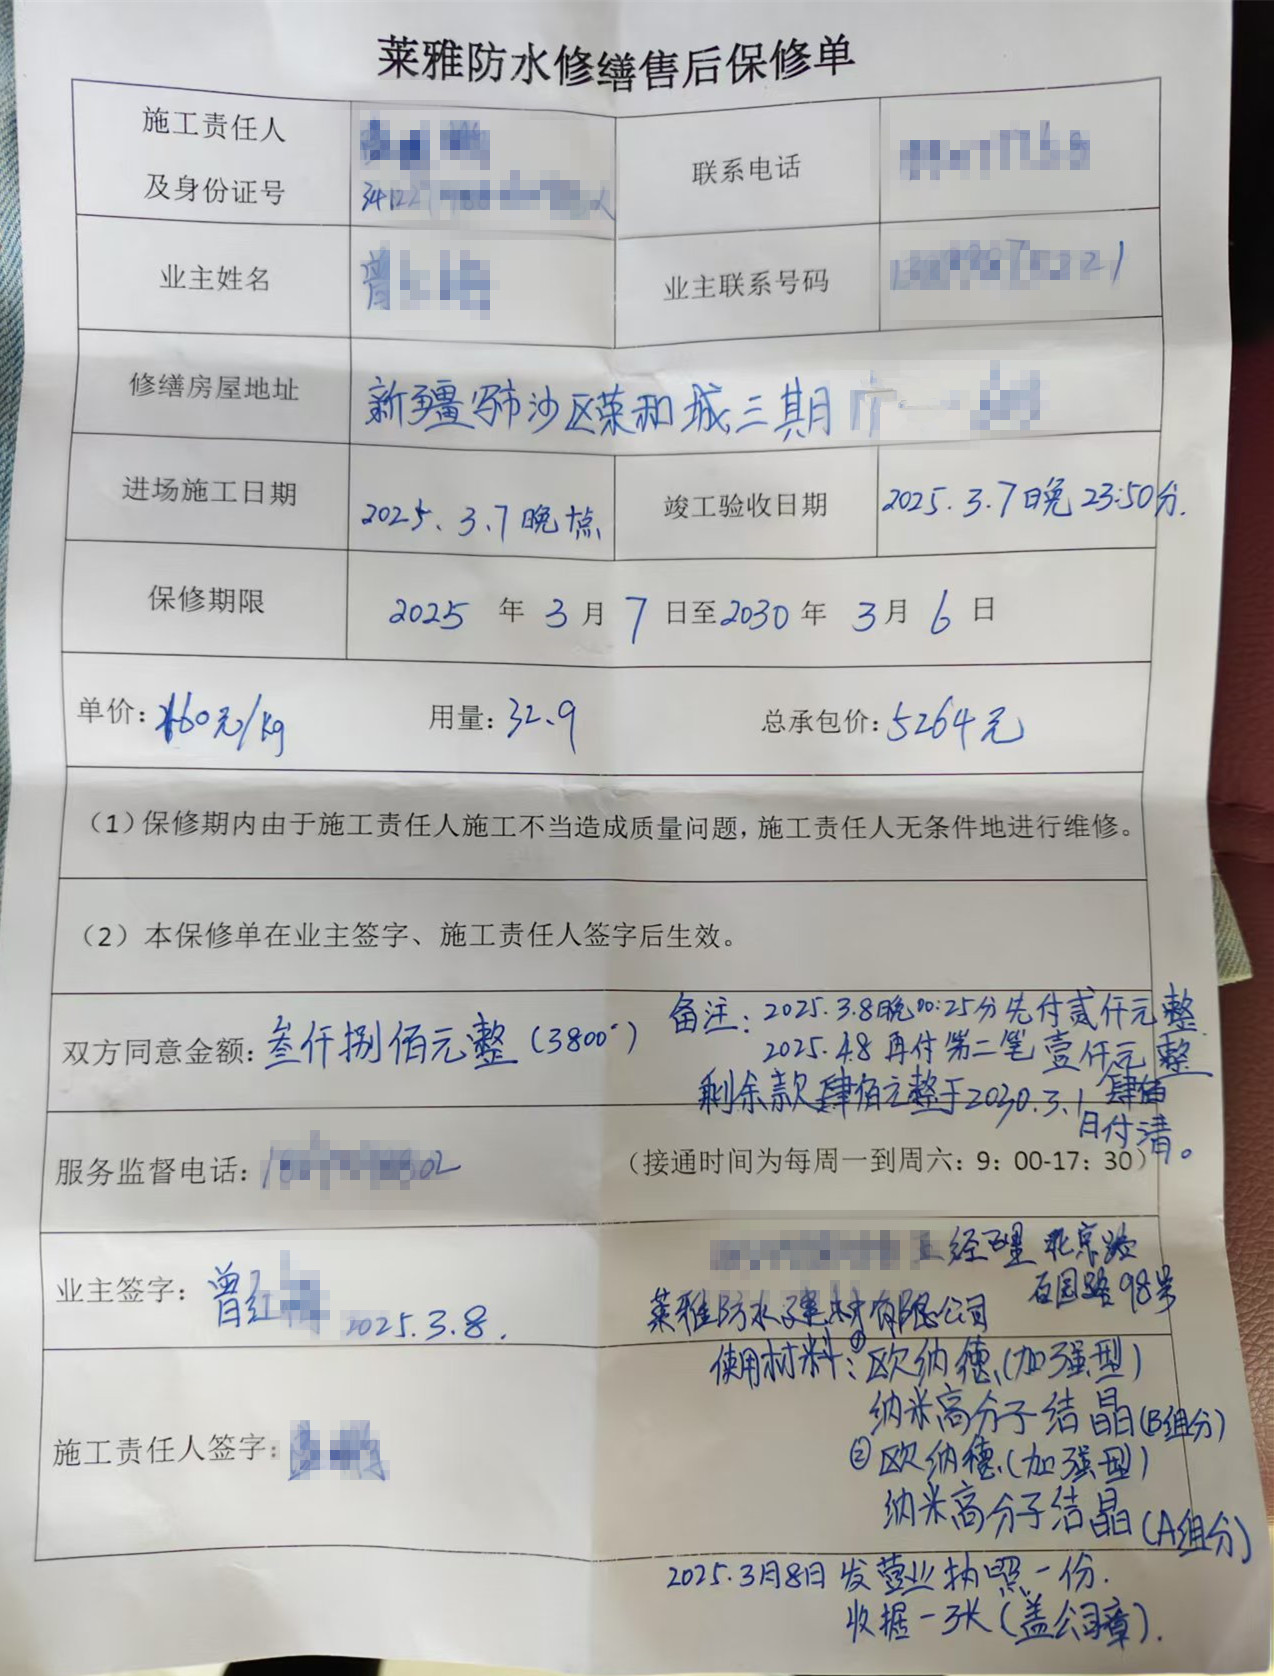 莱雅防水修缮售后保修单
施工责任人
及身份证号
34122
联系电话
业主姓名
曾
业主联系号码
21
修缮房屋地址
新疆 沙区荣和城三期
进场施工日期
2025.3.7晚 点
竣工验收日期
2025.3.7日晚23:50分.
保修期限
2025 年 3 月 7 日至2030 年 3 月 6 日
单价: 160元/kg 用量: 32.9 总承包价: 5264元
(1)保修期内由于施工责任人施工不当造成质量问题,施工责任人无条件地进行维修。
(2)本保修单在业主签字、施工责任人签字后生效。
双方同意金额: 叁仟捌佰元整(3800)
备注: 2025.3.8晚00:25分先付贰仟元整
2025.4.8再付第二笔壹仟元整
剩余款肆佰元整于2030.3.1
肆佰
日付清。
服务监督电话: 02
(接通时间为每周一到周六: 9: 00-17: 30)
业主签字: 曾红 2025.3.8.
经理 北京路
石园路98号
莱雅防水建材有限公司
使用材料:①欧纳德(加强型)
纳米高分子结晶(B组分)
②欧纳德(加强型)
纳米高分子结晶(A组分)
施工责任人签字:
2025.3月8日发营业执照一份.
收据一张(盖公司章).